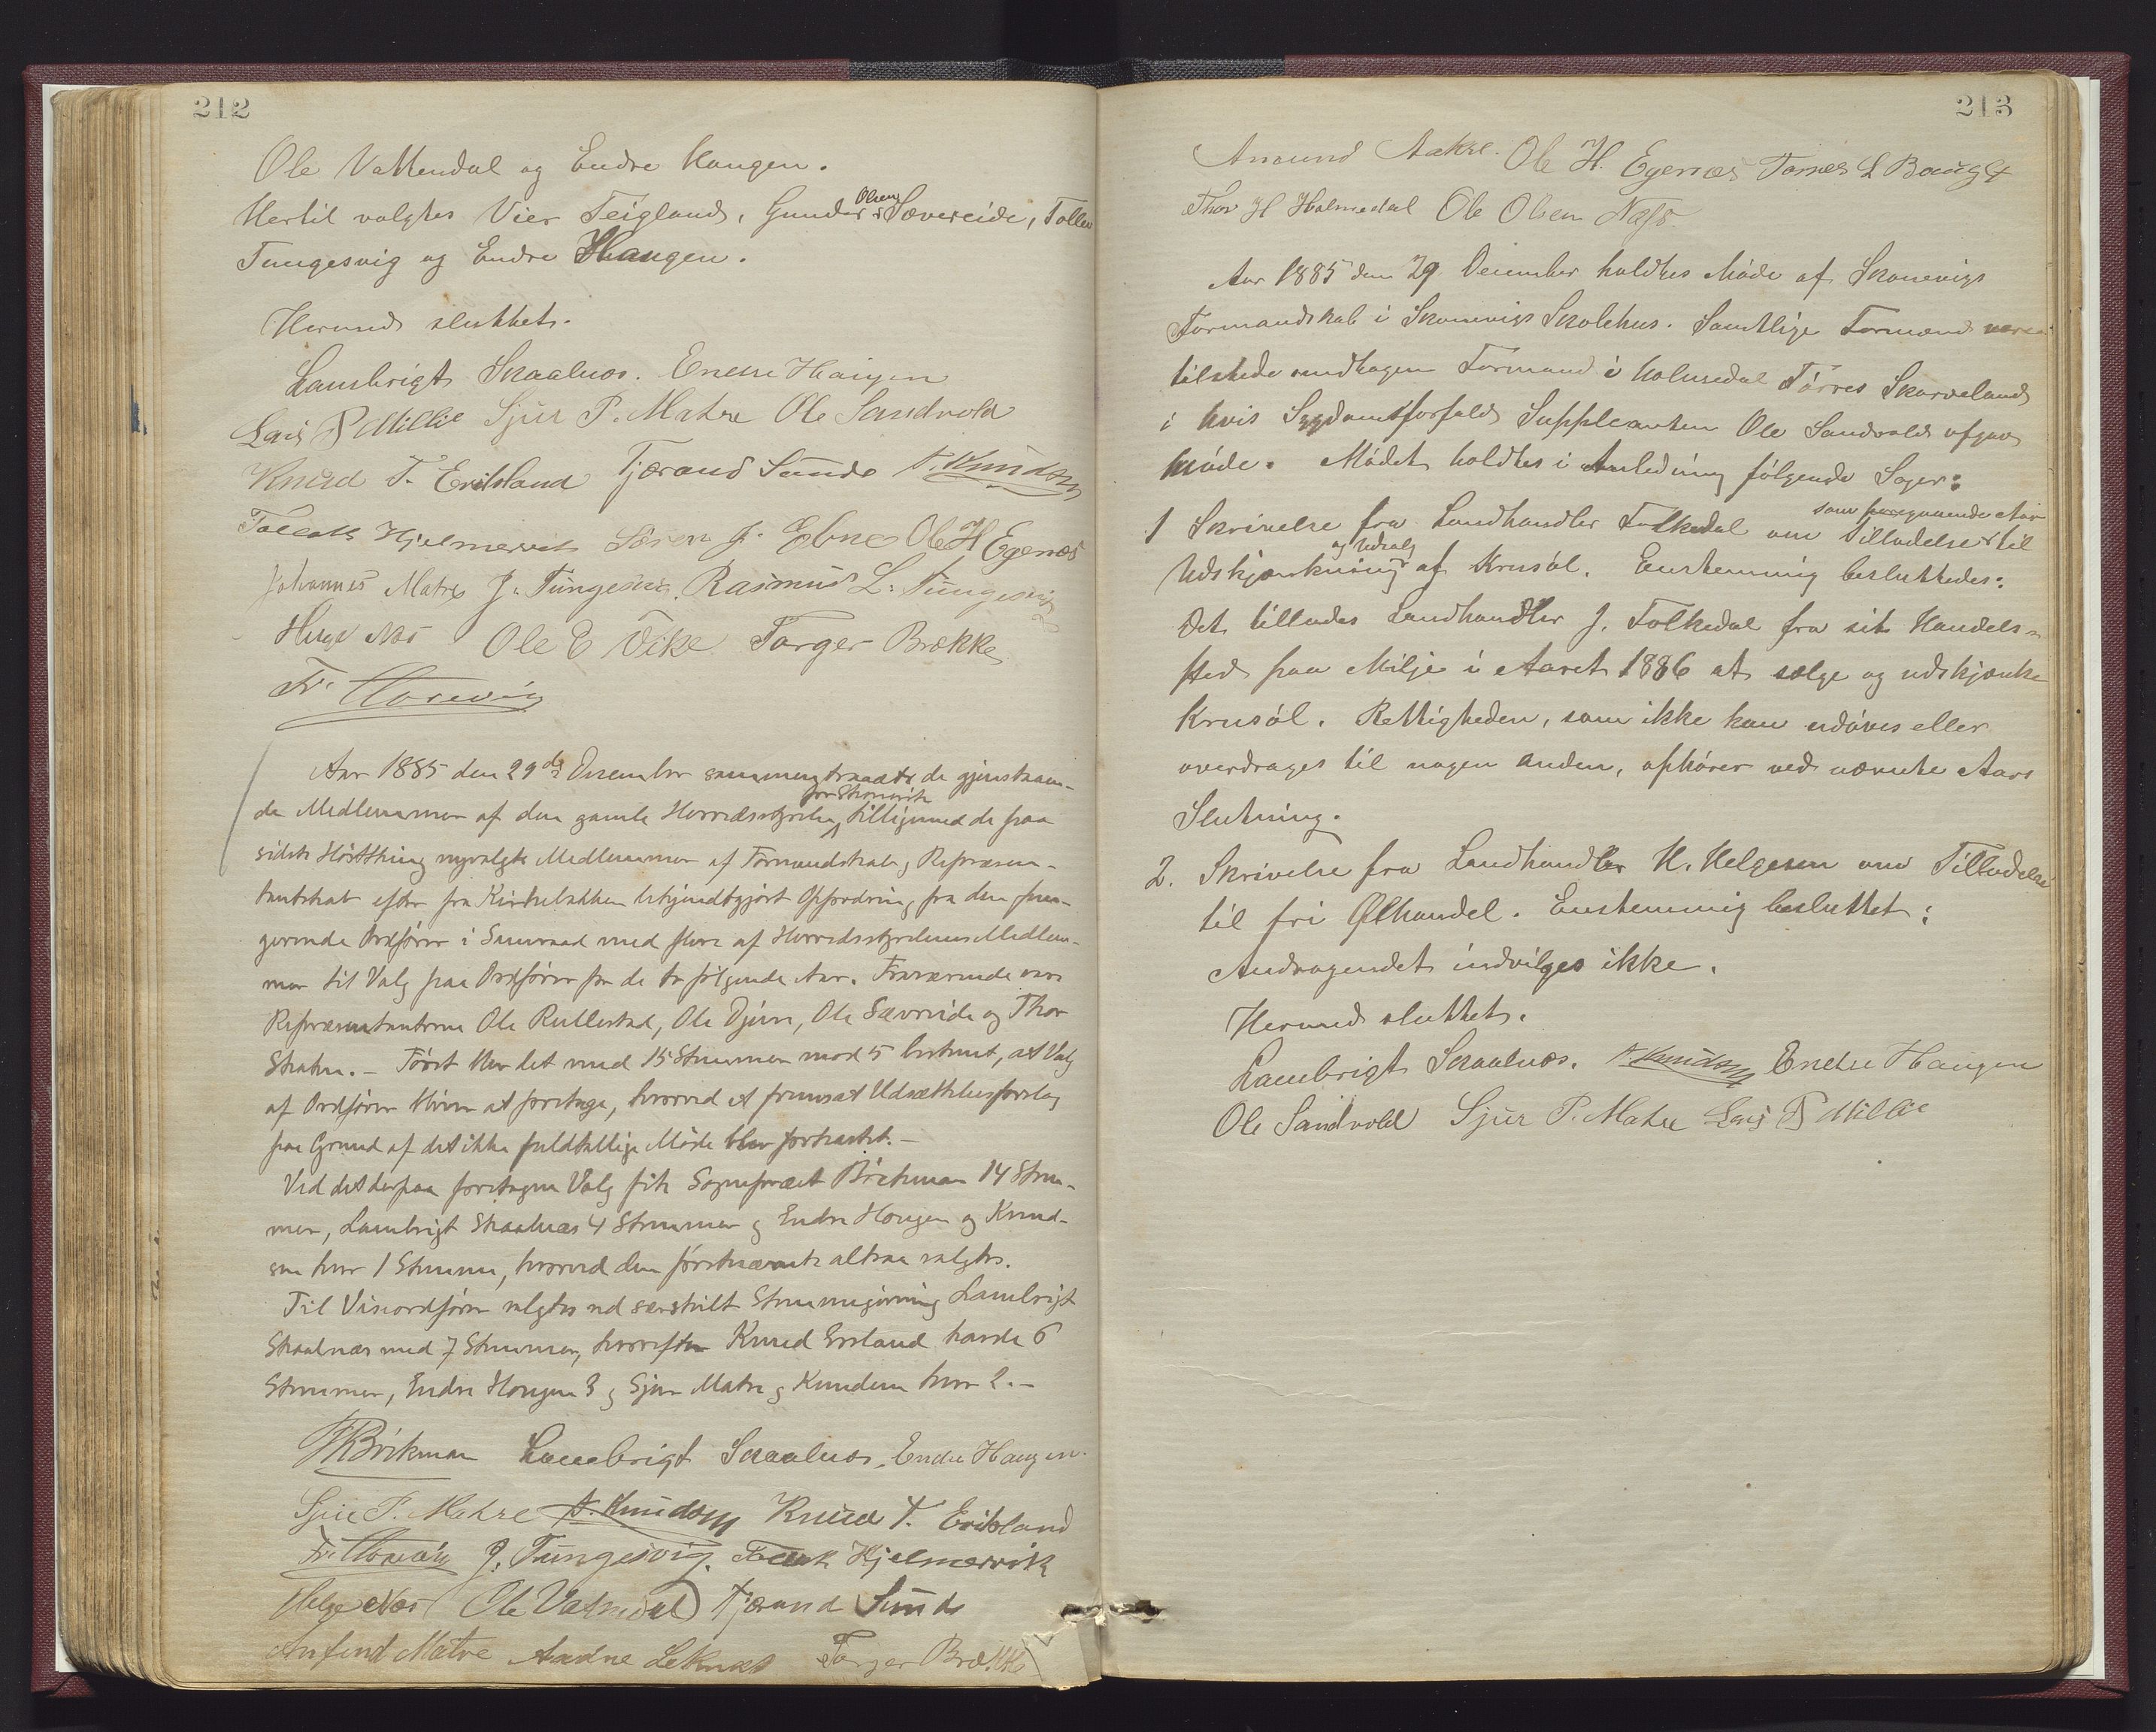 212
Ole Vattendal og Endre Haugen.
Hertil valgtes Vier Teigland, Gunder Olsen Sævereide, Tollev
Tungesvig og Endre Haugen.
Hermed sluttet.
Lambrigt Skaalnes. Endre Haugen
Lars Millie Sjur P. Matre Ole Sandvold
Knud T. Eritsland Tjærand Sunde A. Knudsen
Hjelmervik Søren J. Ebne Ole H Egenæs
Johannes Matre J. Tungesvig. Rasmus L. Tungesvig
Helge Næs Ole E Vike Torger Brække
Fr.
Aar 1885 den 29de December sammentraadte de gjenstaaen-
de Medlemmer af den gamle Herredsstyrelse for Skonevik tilligemed de paa
sidste Høstthing nyvalgte Medlemmer af Formandskab og Repræsen-
tantskab efter fra Kirkebakken bekjendtgjort Opfordring fra den fun-
gerende Ordfører i Samraad med flere af Herredsstyrelsens Medlem-
mer til Valg paa Ordfører for de to følgende Aar. Fraværende var
Repræsentanterne Ole Rullestad, Ole Djuve, Ole Sævereide og Thor
Først blev det med 15 Stemmer mod 5 bestemt, at Valg
af Ordfører bliver at foretage, hvorved et fremsat Udsættelsesforslag
paa Grund af det ikke fuldtallige Møde blev forkastet.-
Ved det derpaa foretagne Valg fik Sogneprest Böckman 14 Stem-
mer, Lambrigt Skaalnæs 4 Stemmer og Endre Hougen og Knud-
sen hver 1 Stemme, hvorved den førstnævnte altsaa valgtes.
Til Viseordfører valgtes ved særskilt Stemmegivning Lambrigt
Skaalnæs med 7 Stemmer, hvorefter Knud Ersland havde 6
Stemmer, Endre Hougen 3 og Sjur Matre og Knudsen hver 2.-
Böckman Lambrigt Skaalnes, Endre Haugen.
Sjur P. Matre A. Knudsen Knud T. Eritsland
Fr. J. Tungesvig. Hjelmervik
Helge Næs Ole Vatnedal Tjærand Sunde
Anfind Matre Andne Leknes Torger Brække
213
Amund Aakre. Ole H. Egenæs Tørres L Bauge
Thor H Holmedal Ole Olsen Næss
Aar 1885 den 29 December holdtes Møde af Skonevigs
Formandskab i Skonevigs Skolehus. Samtlige Formænd vare
tilstede undtagen Formand i Holmedal Tørres Skorveland
i hvis Sygdomsforfald Suppleanten Ole Sandvold afgav
Møde. Mødet holdtes i Anledning følgende Sager:
1 Skrivelse fra Landhandler Folkedal om Tilladelse som foregaaende Aar til
Udskjænkning og Udsalg af Krusøl. Enstemmig besluttedes:
Det tillades Landhandler J. Folkedal fra sit Handels-
sted paa Milje i Aaret 1886 at sælge og udskjænke
Krusøl. Rettigheden, som ikke kan udøves eller
overdrages til nogen anden, ophører ved nævnte Aars
Slutning.
2. Skrivelse fra Landhandler H. Helgesen om Tilladelse
til fri Ølhandel. Enstemmig besluttet:
Andragendet indvilges ikke.
Hermed sluttet.
Lambrigt Skaalnes. A. Knudsen Endre Haugen
Ole Sandvold Sjur P. Matre Lars Millie